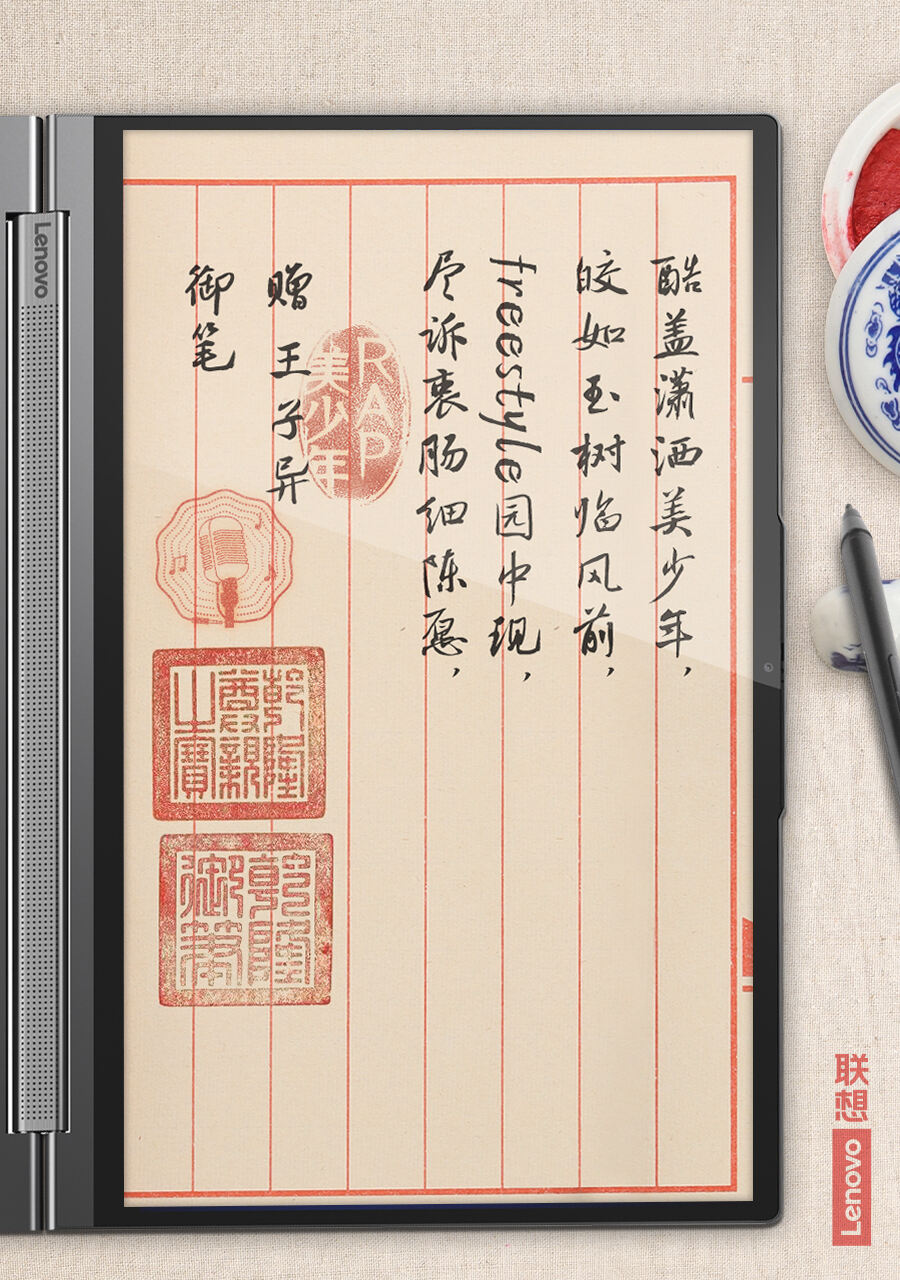 酷盖潇洒美少年，
皎如玉树临风前，
freestyle园中现，
尽诉衷肠细陈愿，
赠王子异
御笔
RAP
美少年
乾隆
尊親
之寶
乾隆
御筆
Lenovo
联想
Lenovo